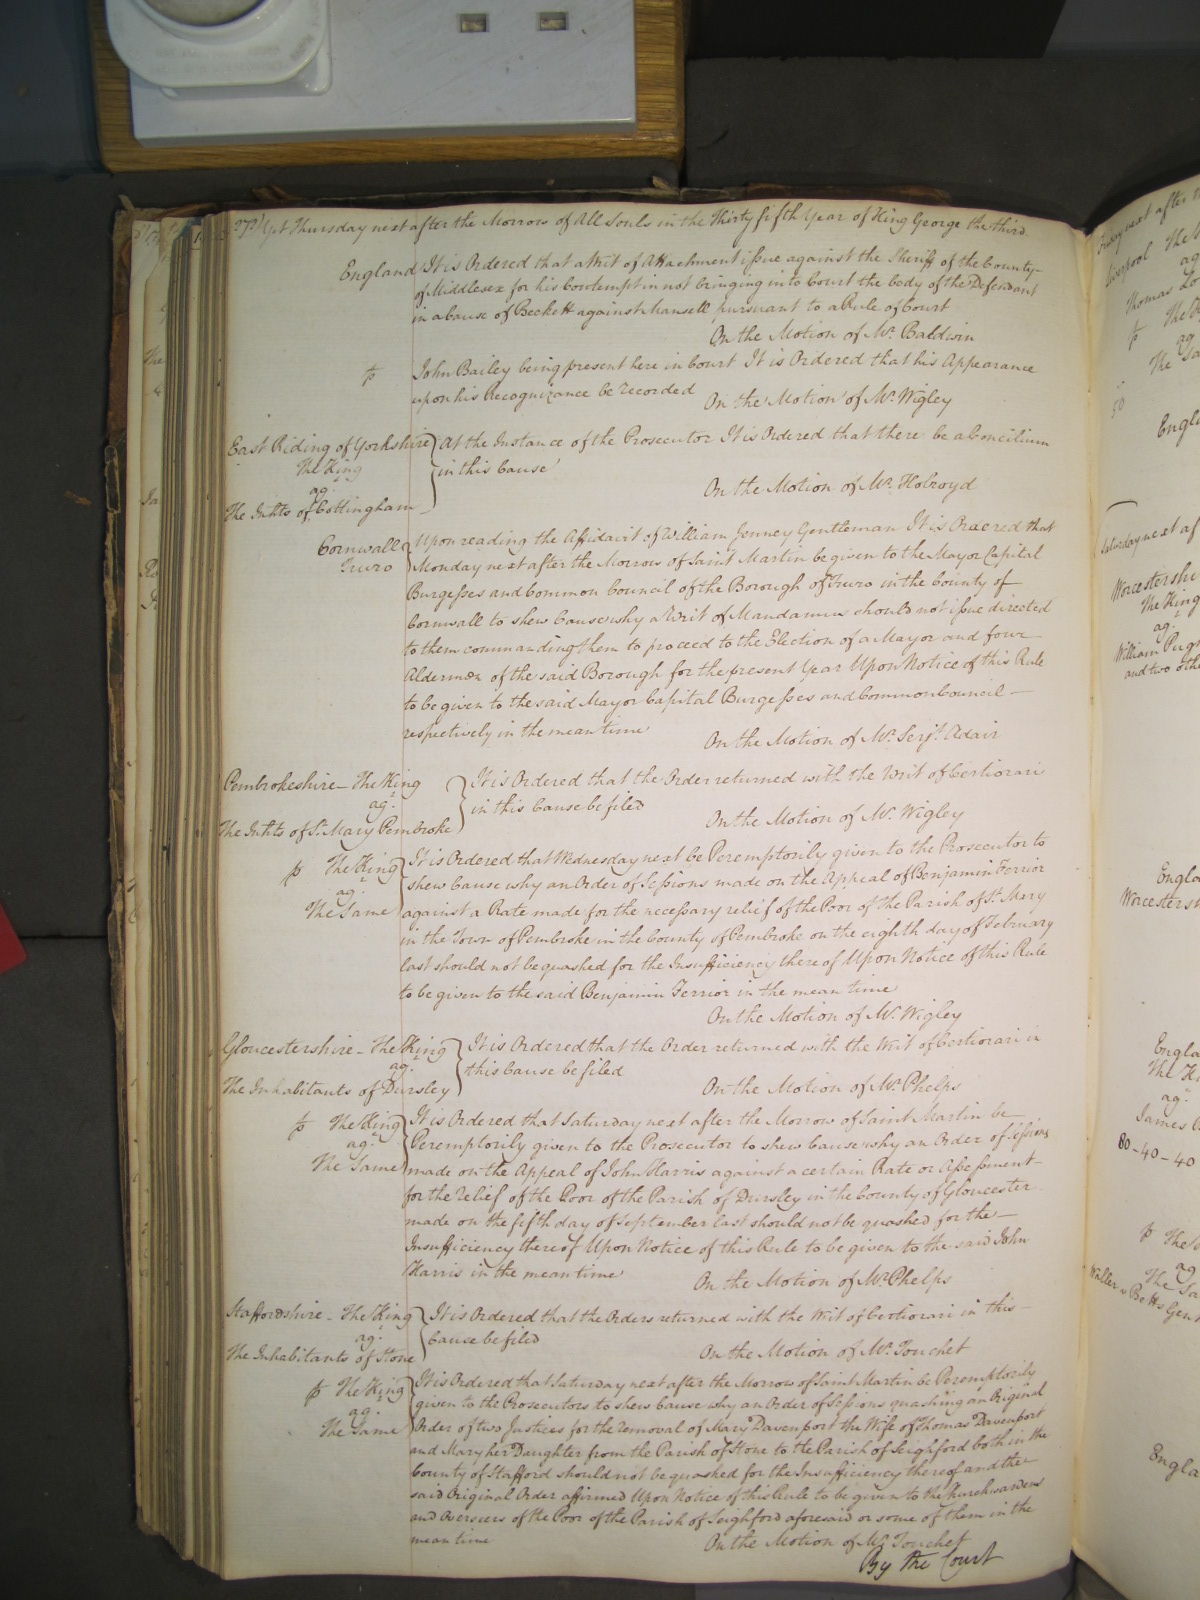 272 Yet Thursday next after the Morrow of All Souls in the Thirty fifth Year of King George the third
England It is Ordered that a Writ of Attachment issue against the Sheriff of the County
of Middlesex for his Contempt in not bringing into Court the body of the Defendant
in a Cause of Beckett against Mansell pursuant to a Rule of Court
On the Motion of Mr. Baldwin
John Bailey being present here in Court It is Ordered that his Appearance
upon his Recognizance be recorded
On the Motion of Mr. Wigley
East Riding of Yorkshire
The King
agt.
The Inhts of Cottingham
At the Instance of the Prosecutor It is Ordered that there be a Concilium
in this Cause
On the Motion of Mr. Holroyd
Cornwall
Truro
Upon reading the Affidavit of William Jenney Gentleman It is Ordered that
Monday next after the Morrow of Saint Martin be given to the Mayor Capital
Burgesses and Common Council of the Borough of Truro in the County of
Cornwall to shew Cause why a Writ of Mandamus should not issue directed
to them commanding them to proceed to the Election of a Mayor and four
Aldermen of the said Borough for the present Year Upon Notice of this Rule
to be given to the said Mayor Capital Burgesses and Common Council
respectively in the mean time
On the Motion of Mr. Serjt. Adair
Pembrokeshire - The King
agt.
The Inhts of St. Mary Pembroke
It is Ordered that the Order returned with the Writ of Certiorari
in this Cause be filed
On the Motion of Mr. Wigley
The King
agt.
The Same
It is Ordered that Wednesday next be Peremptorily given to the Prosecutor to
shew Cause why an Order of Sessions made on the Appeal of Benjamin Ferrior
against a Rate made for the necessary relief of the Poor of the Parish of St. Mary
in the Town of Pembroke in the County of Pembroke on the eighth day of February
last should not be quashed for the Insufficiency thereof Upon Notice of this Rule
to be given to the said Benjamin Ferrior in the mean time
On the Motion of Mr. Wigley
Gloucestershire - The King
agt.
The Inhabitants of Dursley
It is Ordered that the Order returned with the Writ of Certiorari in
this Cause be filed
On the Motion of Mr. Phelps
The King
agt.
The Same
It is Ordered that Saturday next after the Morrow of Saint Martin be
Peremptorily given to the Prosecutor to shew Cause why an Order of Sessions
made on the Appeal of John Harris against a certain Rate or Assessment
for the relief of the Poor of the Parish of Dursley in the County of Gloucester
made on the fifth day of September last should not be quashed for the
Insufficiency thereof Upon Notice of this Rule to be given to the said John
Harris in the mean time
On the Motion of Mr. Phelps
Staffordshire - The King
agt.
The Inhabitants of Stone
It is Ordered that the Orders returned with the Writ of Certiorari in this
Cause be filed
On the Motion of Mr. Touchet
The King
agt.
The Same
It is Ordered that Saturday next after the Morrow of Saint Martin be Peremptorily
given to the Prosecutors to shew Cause why an Order of Sessions quashing an Original
Order of two Justices for the removal of Mary Davenport the Wife of Thomas Davenport
and Mary her Daughter from the Parish of Stone to the Parish of Seighford both in the
County of Stafford should not be quashed for the Insufficiency thereof and the
said Original Order affirmed Upon Notice of this Rule to be given to the Churchwardens
and Overseers of the Poor of the Parish of Seighford aforesaid or some of them in the
mean time
On the Motion of Mr. Touchet
By the Court
Liverpool
Thomas
The
50
Saturday next
The King
agt.
William
and two
James
80-40-40
The